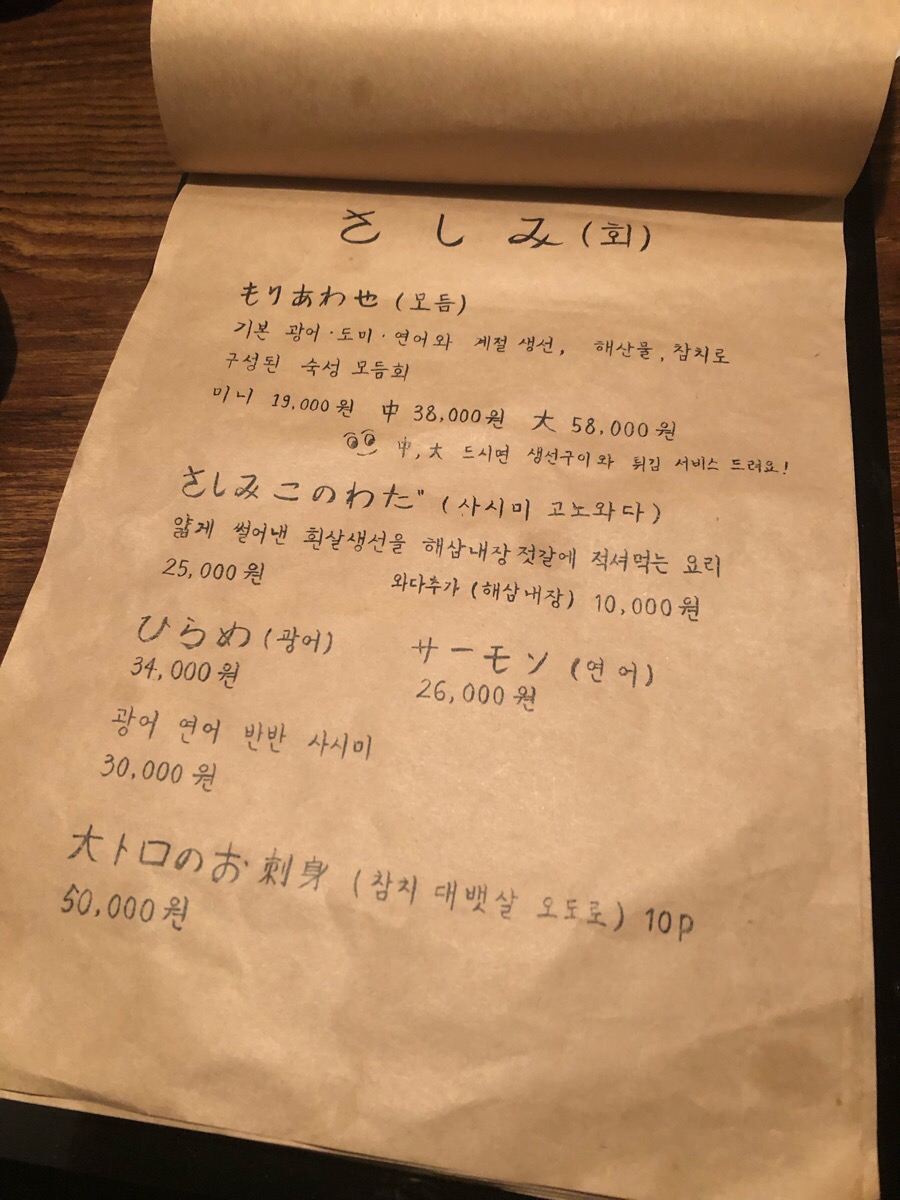 さしみ (회)
もりあわせ (모듬)
기본 광어·도미·연어와 계절 생선, 해산물, 참치로
구성된 숙성 모듬회
미니 19,000원 中 38,000원 大 58,000원
中, 大 드시면 생선구이와 튀김 서비스 드려요!
さしみ このわだ (사시미 고노와다)
얇게 썰어낸 흰살생선을 해삼내장젓갈에 적셔먹는 요리
25,000원 와다추가 (해삼내장) 10,000원
ひらめ (광어) サーモン (연어)
34,000원 26,000원
광어 연어 반반 사시미
30,000원
大トロのお刺身 (참치 대뱃살 오도로) 10p
50,000원